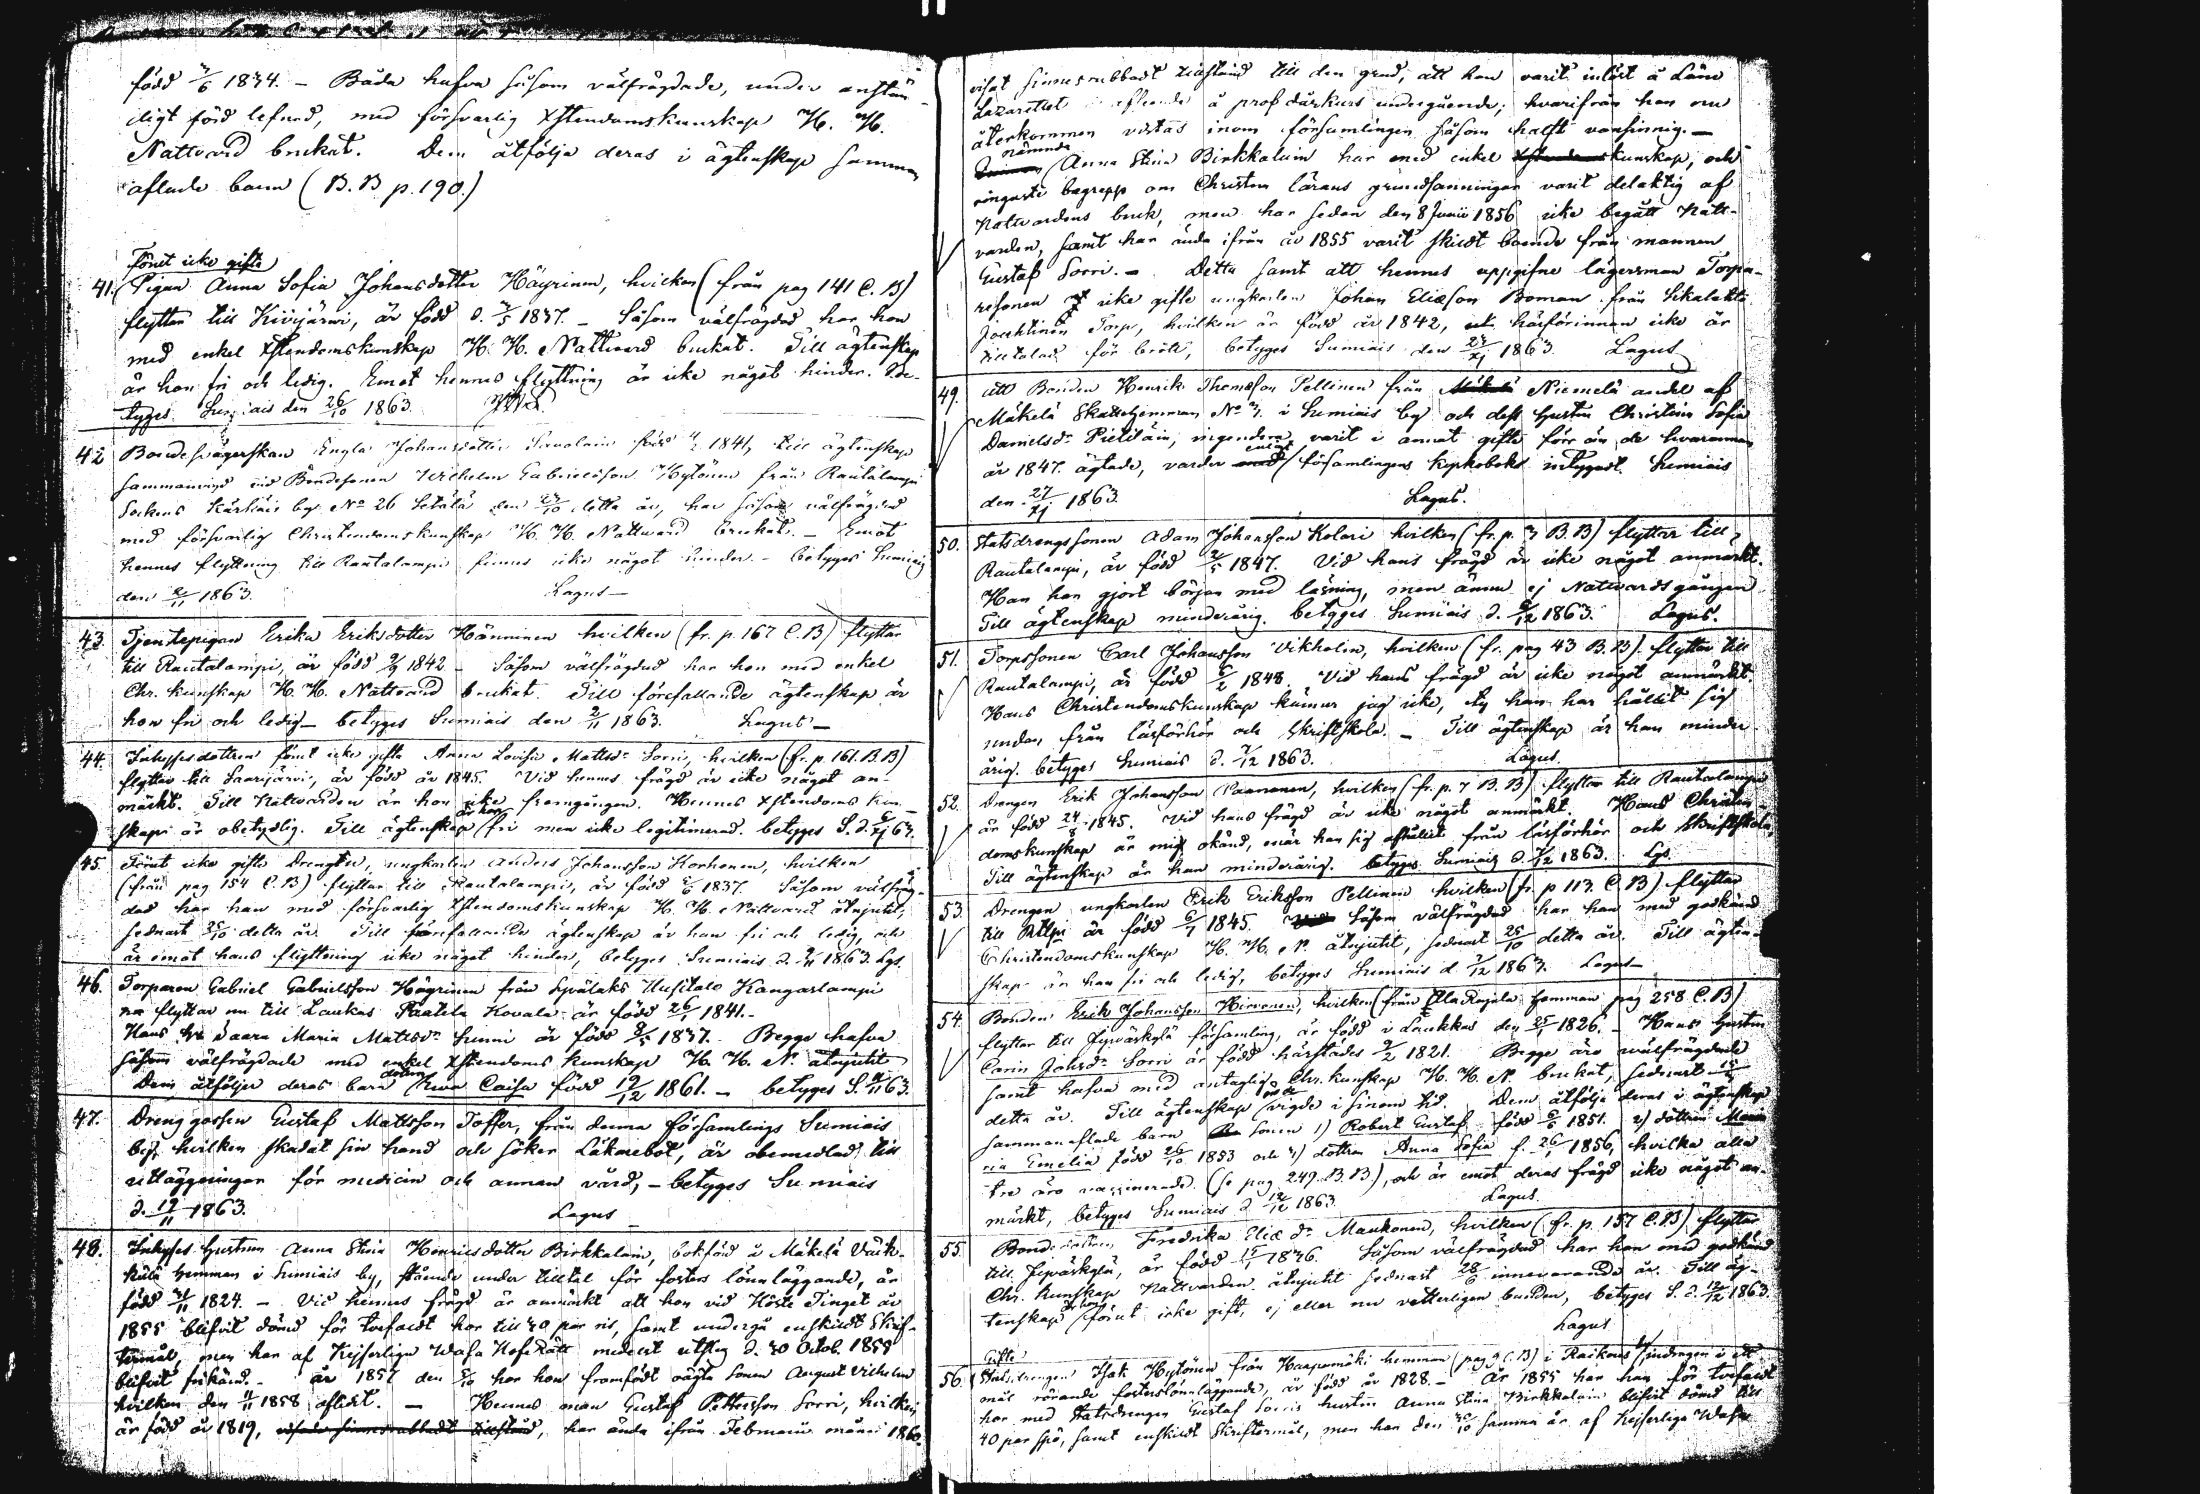 född 7/6 1834. – Båda hafva såsom välfrägdade, under anstän-
digt förd lefnad, med försvarlig Xstendomskunskap H. H.
Nattvard brukat. Dem åtfölja deras i ägtenskap samman
aflade barn (B.B p. 190.)
Förut icke gifta
41. Pigan Anna Sofia Johansdotter Häyrinen, hvilken (från pag 141 C.B)
flyttar till Kivijärvi, är född d. 1837. – Såsom välfrägdad har hon
med enkel Xstendomskunskap H. H. Nattvard brukat. Till ägtenskap
är hon fri och ledig. Emot hennes flyttning är icke något hinder. Be-
tyges Sumiais den 26/10 1863.
42 Bondesvägerskan Engla Johansdotter född 1841, till ägtenskap
sammanvigd vid Bondesonen Wilhelm Gabrielsson Hytönen från Rautalampi
Sockens Kärkäis by No 26 den 25/10 detta år, har såsom välfrägdad
med försvarlig Christendomskunskap H. H. Nattvard brukat. – Emot
hennes flyttning till Rautalampi finnes icke något hinder. – betyges Sumiais
den 2/11 1863. Lagus –
43. Tjenstepigan Erika Eriksdotter Hänninen hvilken (fr. p. 167 C.B) flyttar
till Rautalampi, är född 1842 – Såsom välfrägdad har hon med enkel
Chr. kunskap H. H. Nattvard brukat. Till förefallande ägtenskap är
hon fri och ledig – betyges Sumiais den 2/11 1863. Lagus –
44. Inhysesdottren förut icke gifta Anna Lovisa Mattsdr Sorri, hvilken (fr. p. 161. B.B)
flyttar till Saarijärvi, är född år 1845. Vid hennes frägd är icke något an-
märkt. Till Nattvarden är hon icke framgången. Hennes Xstendoms kun-
skap är obetydlig. Till ägtenskap är hon fri men icke legitimerad. betyges S. d. 63.
45. Förut icke gifte Drengen, ungkarlen Anders Johansson Korhonen, hvilken
(från pag 154 C.B) flyttar till Rautalampi, är född 1837. Såsom välfräg-
dad har han med försvarlig Xstendomskunskap H. H. Nattvard åtnjutit,
sednast 25/10 detta år. Till förefallande ägtenskap är han fri och ledig, och
är emot hans flyttning icke något hinder, betyges Sumiais d. 1863. Lgs.
46. Torparen Gabriel Gabrielsson Häyrinen från Syvälaks Uusitalo Kangaslampi
flyttar nu till Laukas Paatila Kovala är född 26/1 1841. –
Hans Saara Maria Mattsdr är född 1837. Begge hafva
såsom välfrägdade med enkel Xstendoms kunskap H. H. N. åtnjutit
Dem åtföljer deras barn dottren Eva Caisa född 19/12 1861. – betyges S. 63.
47. Drenggossen Gustaf Mattsson Toffer, från denna församlings Sumiais
by, hvilken skadat sin hand och söker Läkarebot, är obemedlad till
utläggningar för medicin och annan vård, – betyges Sumiais
d. 19/11 1863. Lagus –
48. Inhyses hustrun Anna Stina Henricsdotter Birkkalain, bokförd å Mäkelä
hemman i Sumiais by, stående under tilltal för fosters lönnläggande, är
född 1824. – Vid hennes frägd är anmärkt att hon vid Höste Tinget år
1855 blifvit dömd för tvefaldt hor till 30 par ris, samt undergå enskildt Skrif-
termål, men har af Kejserliga Wasa HofRätt medelst utslag d. 30 Octob. 1855
blifvit frikänd. – År 1857 den har hon framfödt oägta sonen August Vilhelm
hvilken den 1858 aflidit. – Hennes man Gustaf Pettersson Sorri, hvilken
är född år 1819, har ända ifrån Februarii månad 1860
visat sinnesrubbadt tillstånd till den grad, att han varit intagen å Läns
Lazarettet å undergående; hvarifrån han nu
återkommen vistas inom församlingen såsom halft vansinnig. –
nämnde Anna Stina Birkkalain har med enkel kunskap, och
ringaste begrepp om Christna lärans grundsanningar varit delaktig af
Nattvardens bruk, men har sedan den 8 Junii 1856 icke begått Natt-
varden, samt har ända ifrån år 1855 varit skildt boende från mannen
Gustaf Sorri. – Detta samt att hennes uppgifne lägersman Torpa-
resonen icke gifte ungkarlen Johan Eliæson Boman från
Torp, hvilken är född år 1842, härförinnan icke är
tilltalad för brott, betyges Sumiais den 1863. Lagus
49. Att Bonden Henrik Thomasson Pellinen från Niemelä andel af
Mäkelä Skattehemman No 3. i Sumiais by och dess hustru Christina Sofia
Danielsdr Pietiläin, ingendera varit i annat gifte förr än de hvarannan
år 1847. ägtade, varder enligt församlingens kyrkobok intygadt. Sumiais
den 27/11 1863. Lagus.
50. Statsdrengssonen Adam Johansson Kolari hvilken (fr. p. 3 B.B) flyttar till
Rautalampi, är född 1847. Vid hans frägd är icke något anmärkt.
Han har gjort början med läsning, men ännu ej Nattvardsgången
Till ägtenskap minderårig. betyges Sumiais d. 1863. Lagus.
51. Torpssonen Carl Johansson Vikholin, hvilken (fr. pag 43 B.B) flyttar till
Rautalampi, är född 1848. Vid hans frägd är icke något anmärkt.
Hans Christendomskunskap känner jag icke, ty han har hållit sig
undan från läsförhör och Skriftskola. – Till ägtenskap är han minder
årig. betyges Sumiais d. 7/12 1863. Lagus.
52. Drengen Erik Johansson Paananen, hvilken (fr. p. 7 B.B) flyttar till Rautalampi
är född 24/8 1845. Vid hans frägd är icke något anmärkt. Hans Christen-
domskunskap är mig okänd, enär han sig afhållit från läsförhör och Skriftskola,
Till ägtenskap är han minderårig. betyges Sumiais d. 7/12 1863. Lgs.
53. Drengen ungkarlen Erik Eriksson Pellinen hvilken (fr. p 113. C.B) flyttar
till Rtlpi är född 6/1 1845. Såsom välfrägdad har han med godkänd
Christendomskunskap H. H. N. åtnjutit, sednast 25/10 detta år. Till ägten-
skap är han fri och ledig, betyges Sumiais d. 7/12 1863. Lagus –
54. Bonden Erik Johansson Hirvonen, hvilken (från hemman pag 258 C.B)
flyttar till Jyväskylä församling, är född i Laukkas den 25/1 1826. – Hans hustru
Carin Johsdr Sorri är född härstädes 9/2 1821. Begge äro välfrägdade
samt hafva med antaglig Chr. kunskap H. H. N. brukat, sednast
detta år. Till ägtenskap vigde i sinom tid. Dem åtfölja deras i ägtenskap
sammanaflade barn sonen 1) Robert Gustaf född 1851. 2) dottren Maria
Emelia född 26/10 1853 och 3) dottren Anna Sofia f. 26/1 1856, hvilka alla
tre äro vaccinerade. (se pag 249. B.B), och är emot deras frägd icke något an-
märkt, betyges Sumiais d 12/12 1863. Lagus.
55. Fredrika Eliæ dr Maukonen, hvilken (fr. p. 157 C.B) flyttar
till Jyväskylä, är född 1836. Såsom välfrägdad har hon med godkänd
Chr. kunskap Nattvarden åtnjutit sednast 28/6 innevarande år. Till äg-
tenskap är hon förut icke gift, ej eller nu vetterligen bunden, betyges S. d. 12/12 1863.
Lagus
Gifte
56. Statsdrengen Isak Hytönen från Haapamäki hemman (pag 9 C.B) i Raikkaus by, indragen i ett
mål rörande fosterslönnläggande, är född år 1828. – År 1855 har han för tvefaldt
hor med Statsdrengen Gustaf Sorris hustru Anna Stina Birkkalain blifvit dömd till
40 par spö, samt enskildt Skriftermål, men har den 30/10 samma år af Kejserliga Wasa